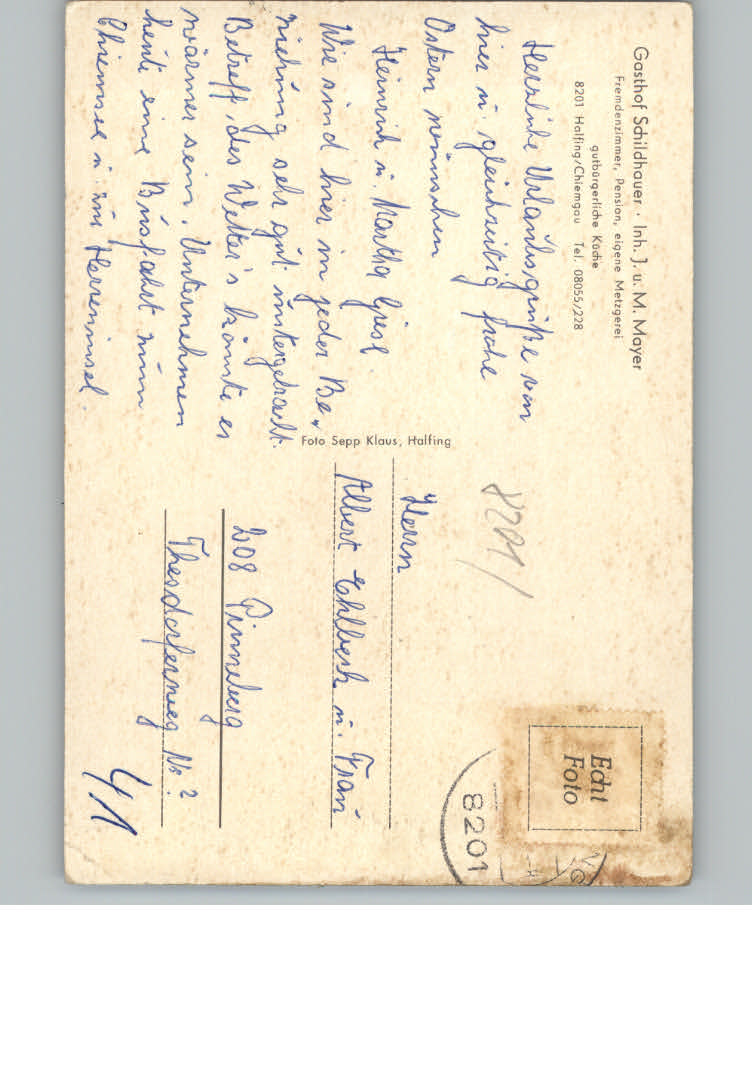 Gasthof Schildhauer · Inh. J. u. M. Mayer
Fremdenzimmer, Pension, eigene Metzgerei
gutbürgerliche Küche
8201 Halfing/Chiemgau Tel. 08055/228
Herrliche Urlaubsgrüße von
hier u. gleichzeitig frohe
Ostern wünschen
Heinrich u. Martha
Wie sind hier in jeder Be„
ziehung sehr gut untergebracht.
Betreff, des Wetter's könnte es
wärmer sein. Unternehmen
heute eine Busfahrt zum
Chiemsee u. zur Herreninsel.
Foto Sepp Klaus, Halfing
8201/
Herrn
Albert Ehlbeck u. Frau
208 Pinneberg
Thesdorferweg Nr 2
4/1
Echt
Foto
8201